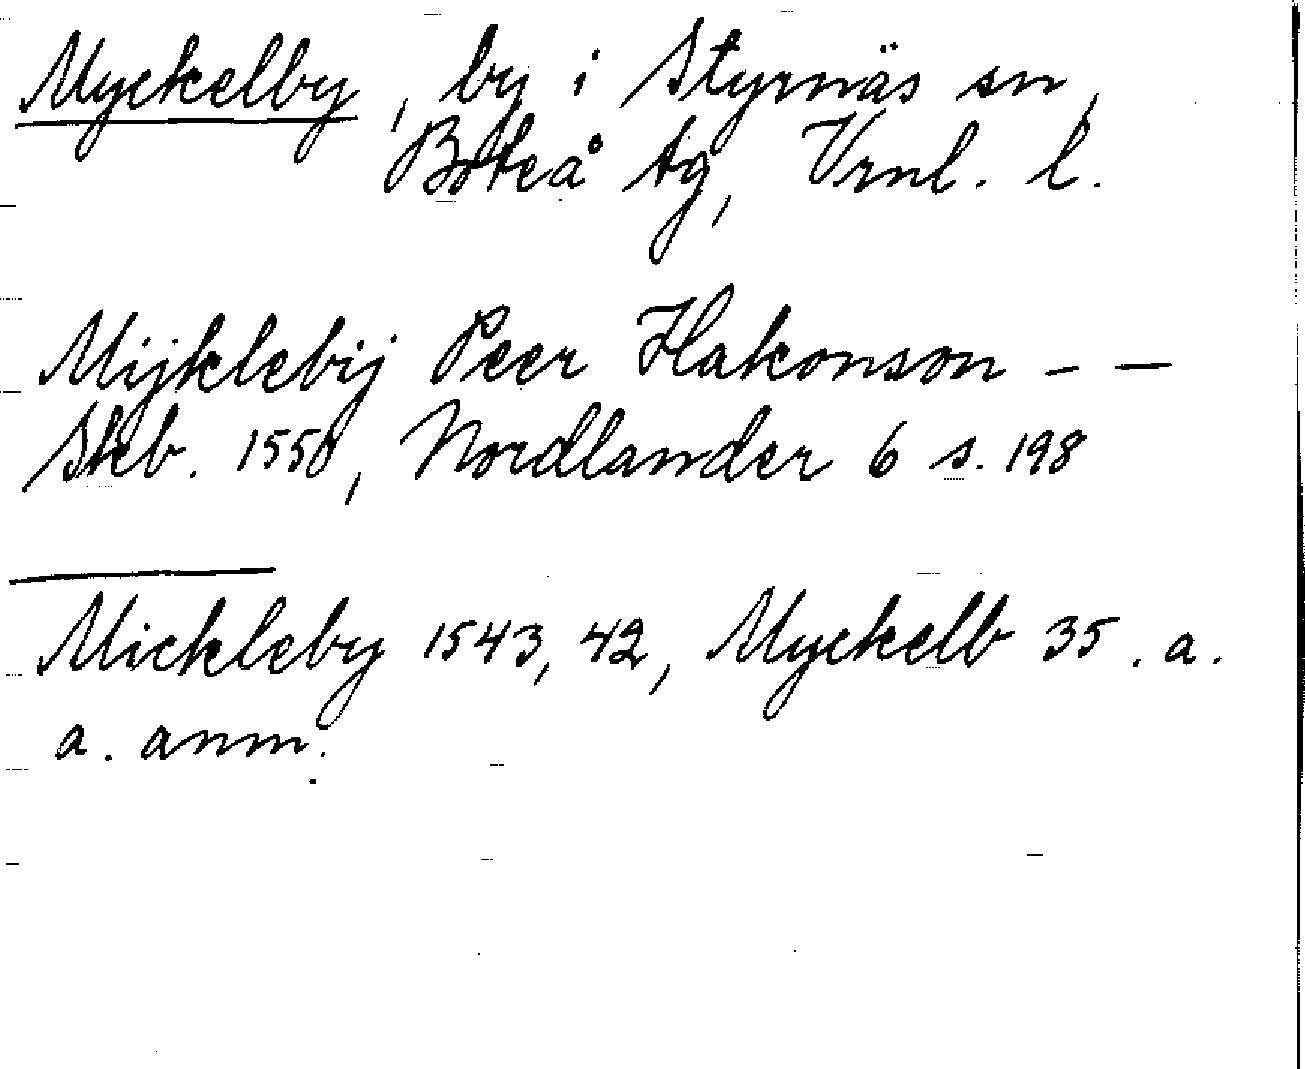 Myckelby, by i Styrnäs sn,
Boteå tg, Vrnl. l.
Mijklebij Peer Hakonson - —
Skb. 1550, Nordlander 6 s. 198
Mickleby 1543, 42, Myckelb 35. a.
a. anm.